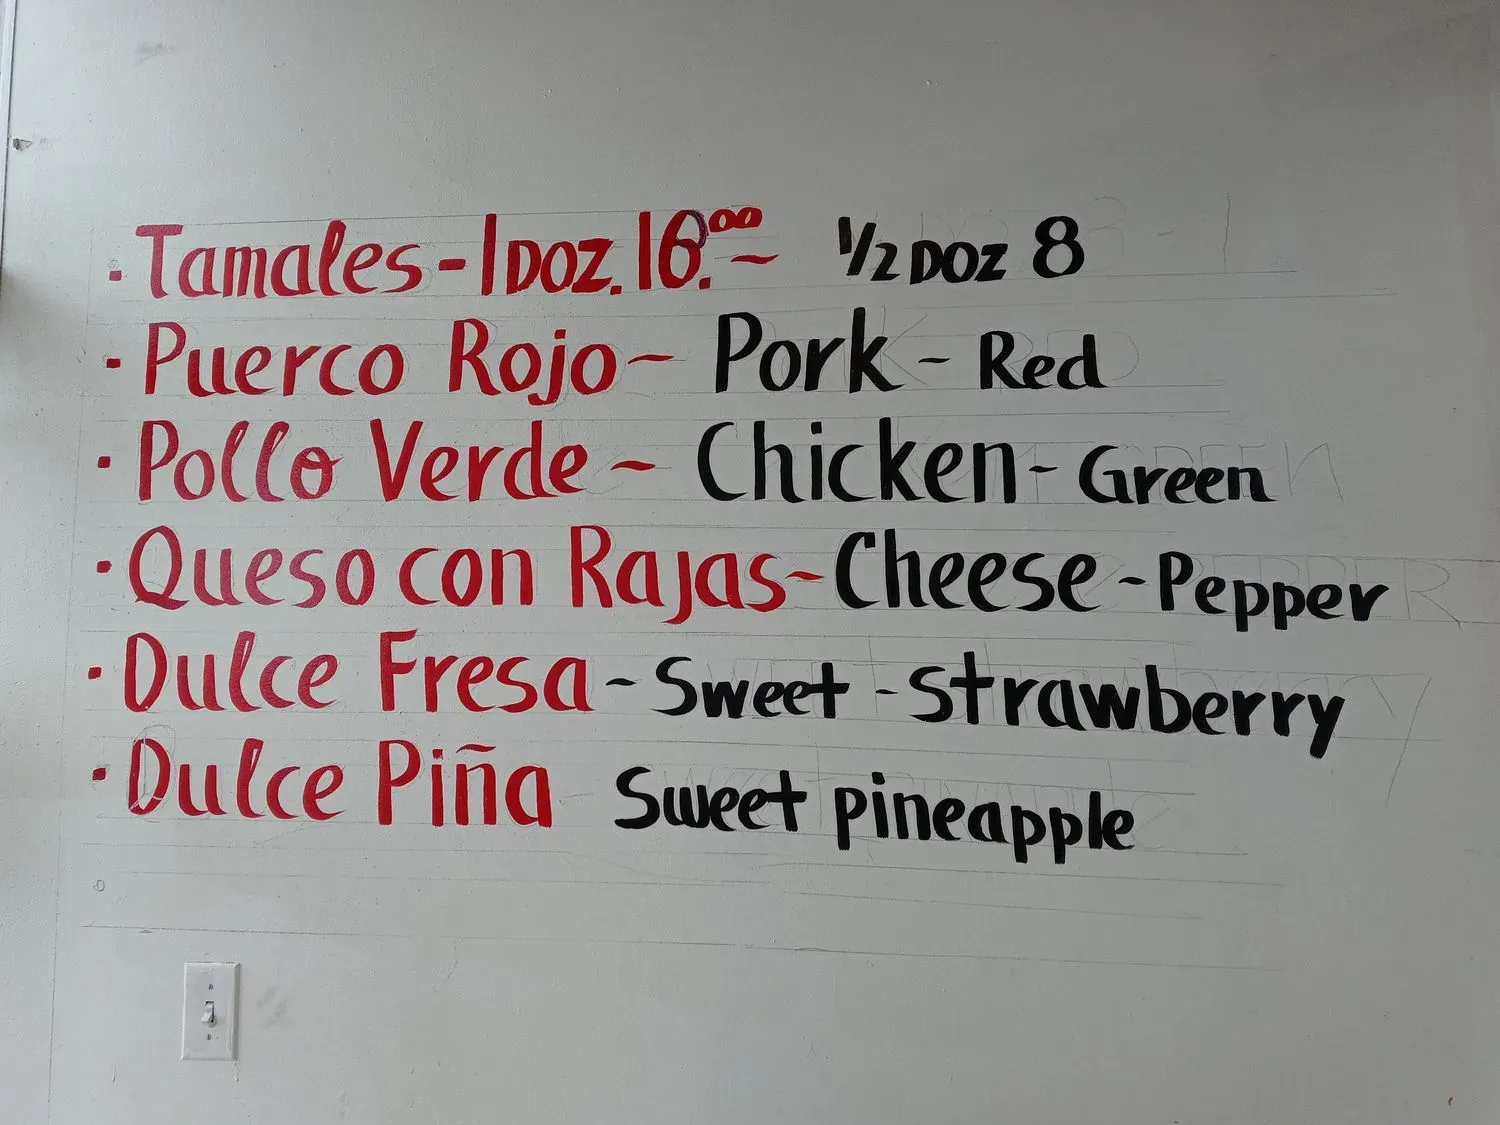 · Tamales - 1 DOZ. 16.00 ~ 1/2 DOZ 8
· Puerco Rojo ~ Pork - Red
· Pollo Verde ~ Chicken - Green
· Queso con Rajas ~ Cheese - Pepper
· Dulce Fresa - Sweet - Strawberry
· Dulce Piña Sweet pineapple